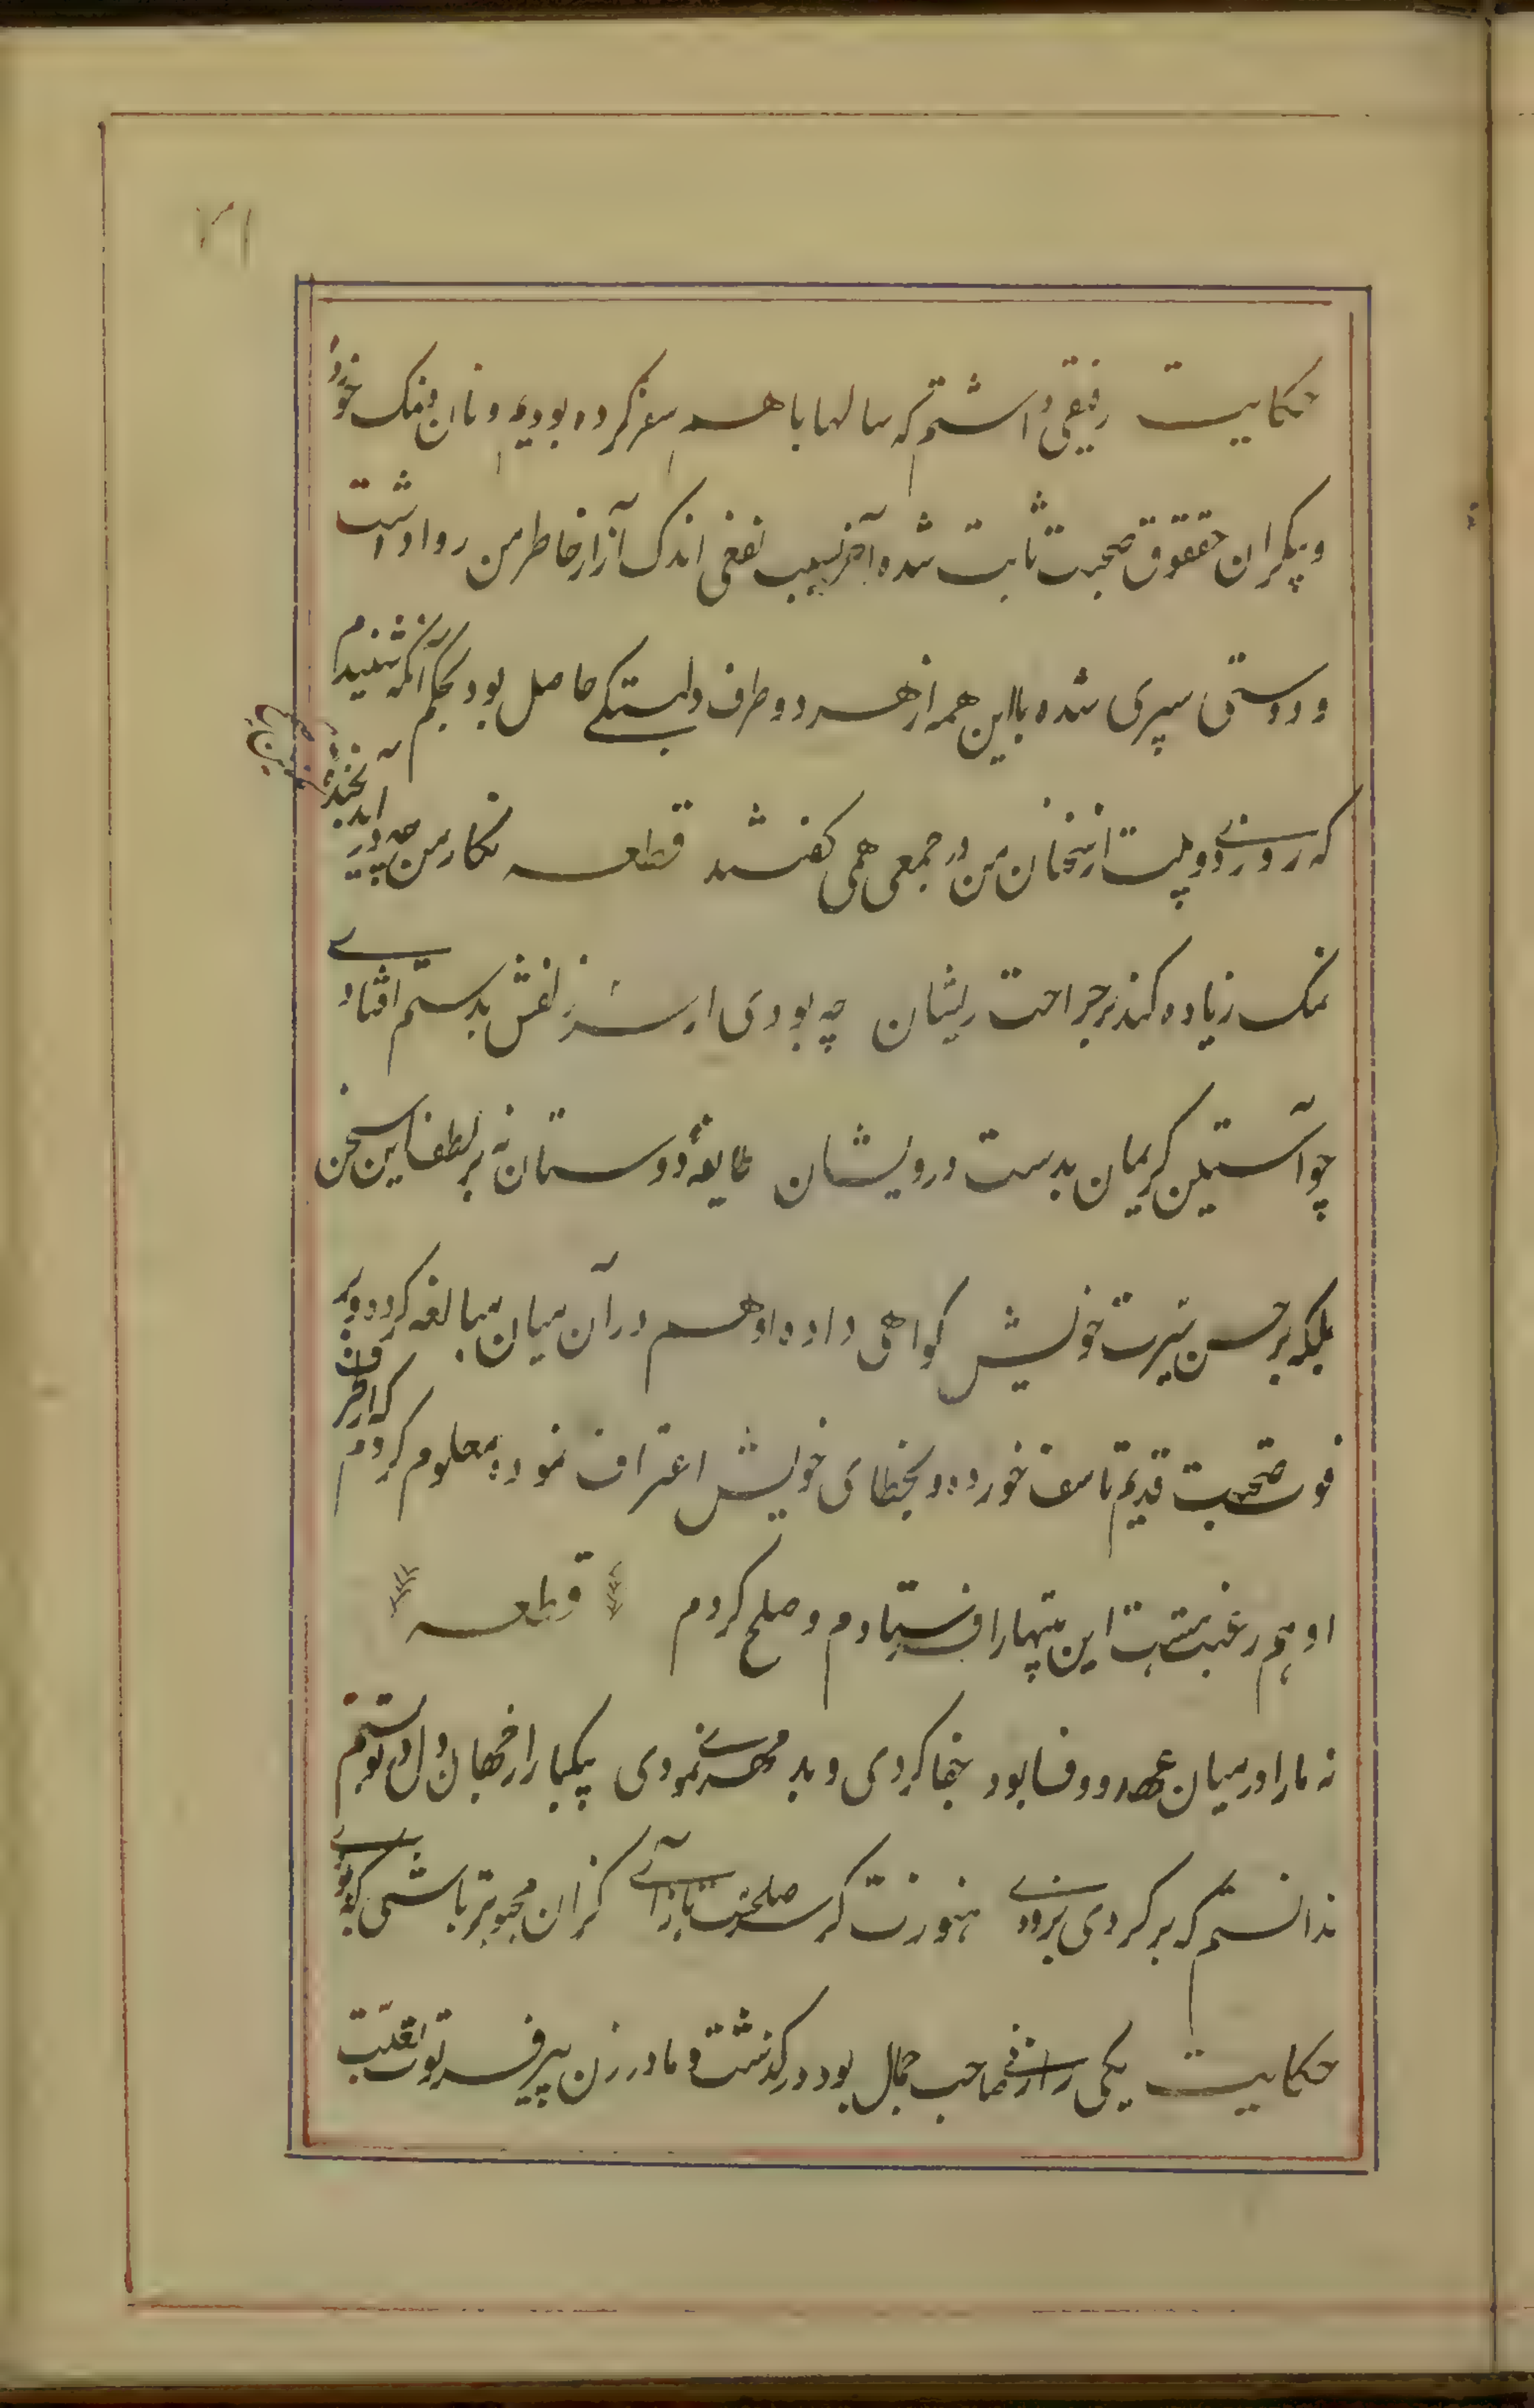 ۷۱
حکایت رفیقی داشتم که سالها با هم سفر کرده بودیم و نان و نمک خورده
و بیکران حققوق صحبت ثابت شده آخر بسبب نفعی اندک آزار خاطر من روا داشت
و دوستی سپری شده با این همه از هر دو طرف دلبستگے حاصل بود بحکم آنکه شنیدم
که روزے دو بیت از سخنان من در جمعی همی گفتند قطعه نگار من چه در آید بخنده نمکین
نمک زیاده کند بر جراحت ریشان چه بودی ار سر زلفش بدستم افتادے
چو آستین کریمان بدست درویشان طایفهٔ دوستان نه بر لطف این سخن
بلکه بر حسن سیرت خویش گواهی داده او هم در آن میان مبالغه کرده و بر
فوت صحبت قدیم تاسف خورده و بخطای خویش اعتراف نموده معلوم کردم که از طرف
او هم رغبت هست این بیتها را فرستادم و صلح کردم قطعه
نه ما را در میان عهد و وفا بود جفا کردی و بد مهرے نمودی بیکبار از جهان دل در تو بستم
ندانستم که بر گردی بزودے هنوزت گر سر صلحست باز آے کزان محبوبتر باشی که بودے
حکایت یکی را زنے صاحب جمال بود در گذشت و مادر زن پیر فرتوت بعلت